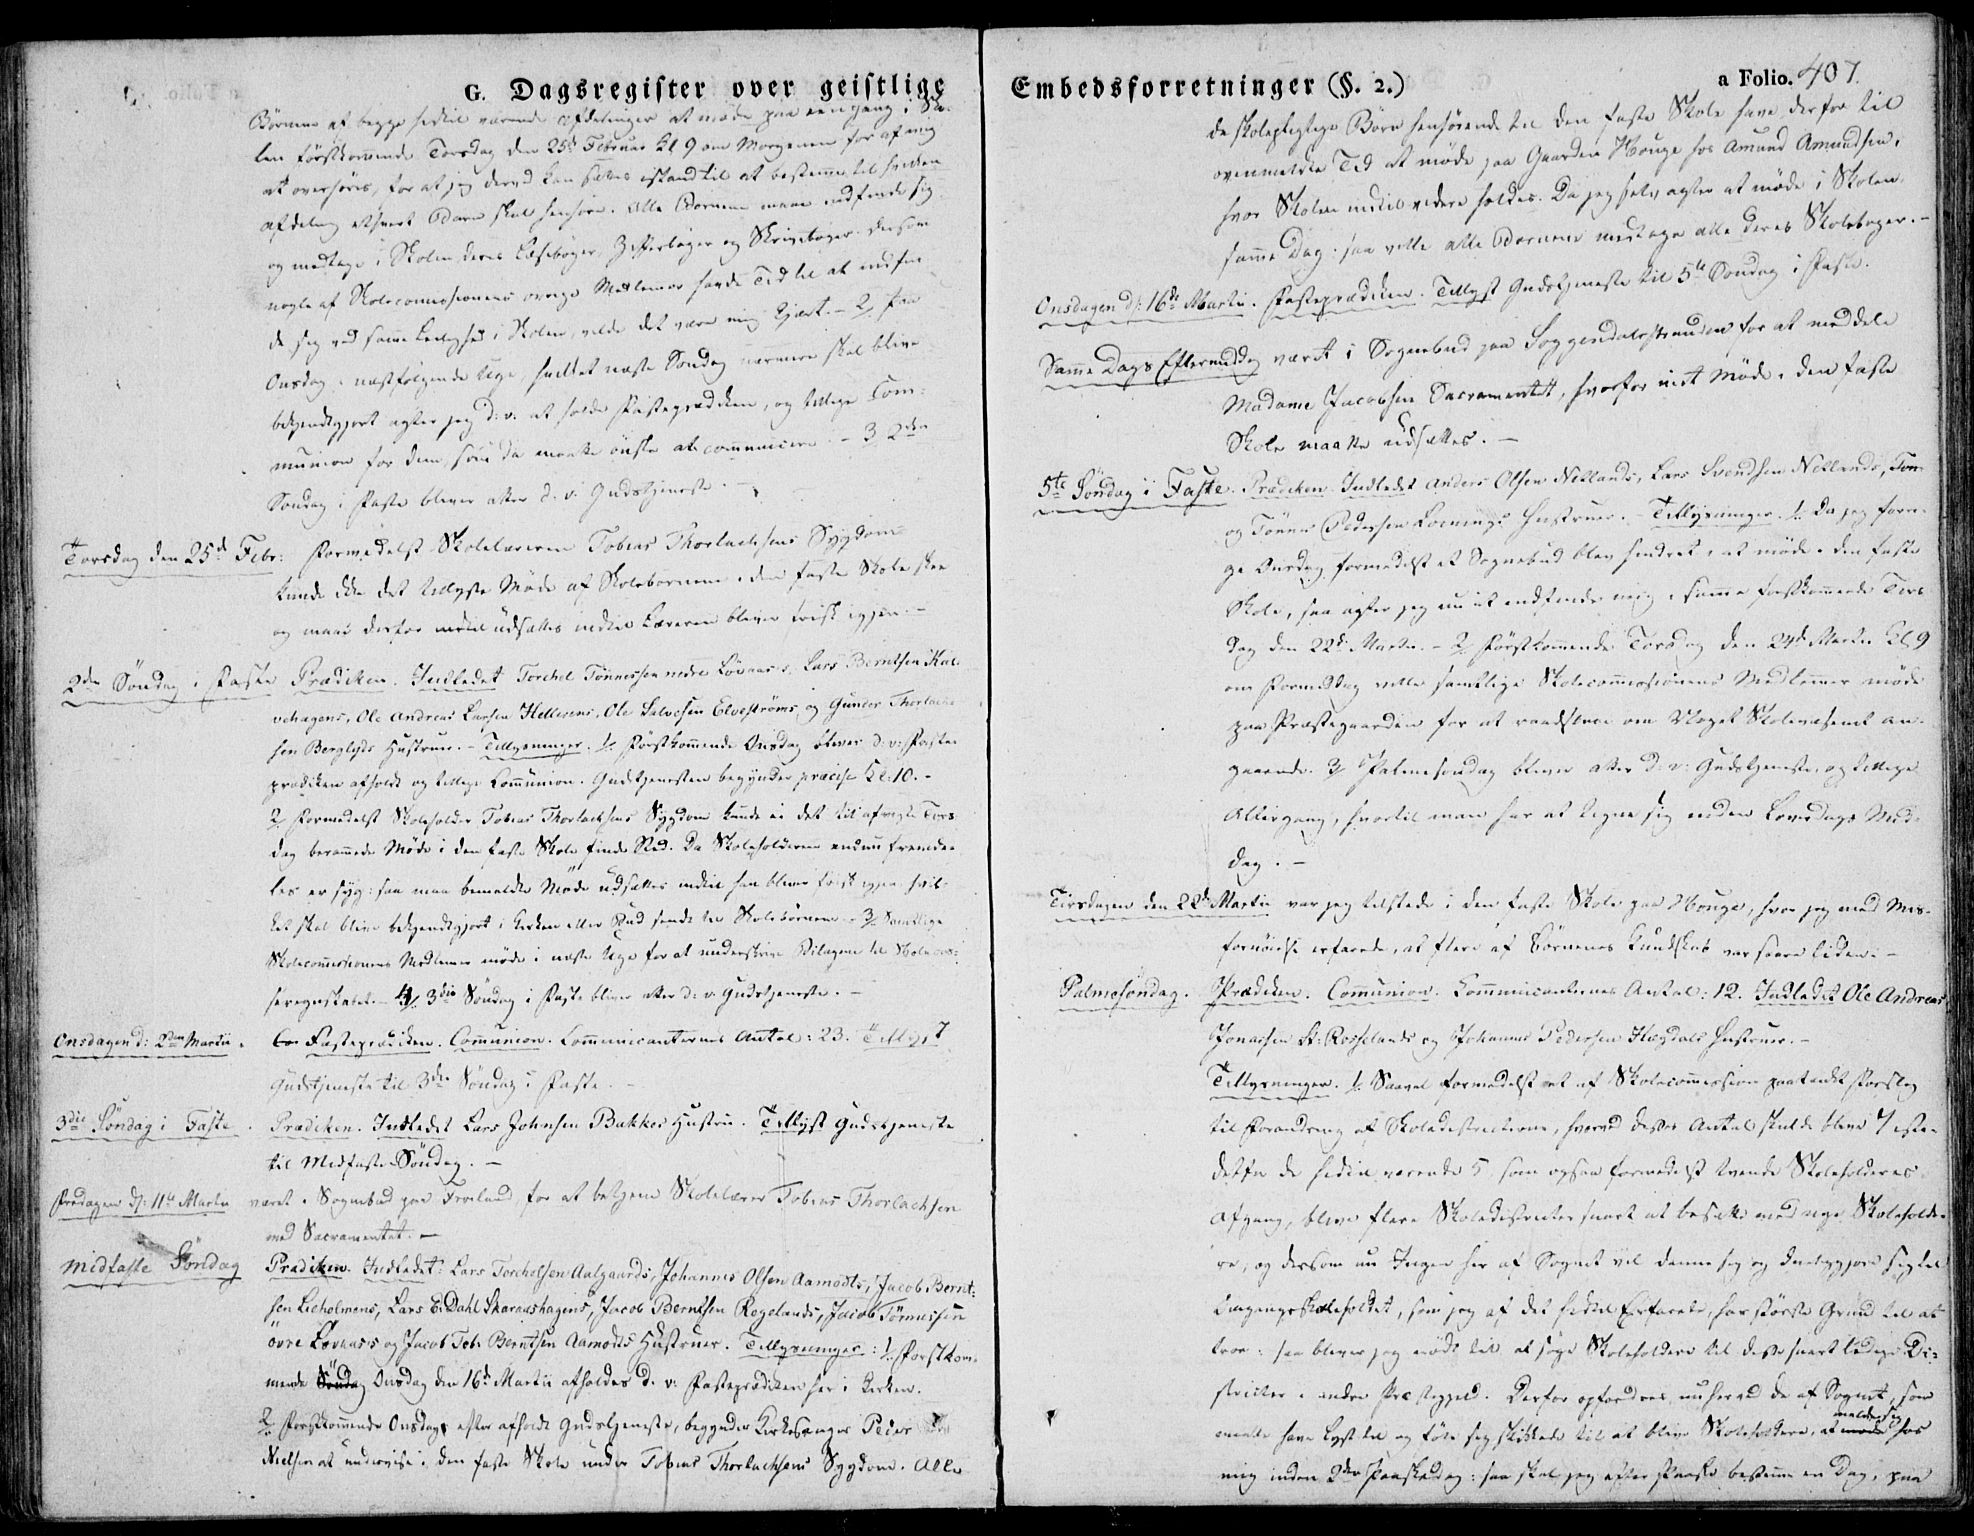 G. Dagsregister over geistlige
Børnene af begge hidtil værende Afdelinger at møde paa een Gang i Sko-
len førstkommende Torsdag den 25de Februar Kl 9 om Morgenen for af mig
at overhøres, for at jeg derved kan sættes istand til at bestemme, til hvilken
Afdeling ethvert Barn skal henhøre. Alle Børnene maae indfinde sig
og medtage i Skolen deres Læsebøger, Zifferbøger og Skrivebøger. Dersom
nogle af Skolecommissionens øvrige Medlemmer havde Tid til at indfin-
de sig ved samme Leilighed i Skolen, vilde det være mig kjært. - 2, Paa
Onsdag i næstfølgende Uge, hvilket næste Søndag nærmere skal blive
bekjendtgjort agter jeg d: v: at holde Fasteprædiken, og tillige Com-
munion for dem, som da maatte ønske at communicere. - 3 2den
Søndag i Faste bliver atter d. v. Gudstjeneste. -
Torsdag den 25de Febr: Formedelst Skolelæreren Tobias Thorlachsens Sygdom
kunde ikke det tillyste Møde af Skolebørnene i den faste Skole skee
og maae derfor udsættes indtil Læreren bliver frisk igjen. -
2den Søndag i Faste Prædiken. Indledet Torchel Tønnessen nedre Løvaas's, Lars Berntsen Kal-
vehagens, Ole Andreas Larsen Hellerens, Ole Salvesen Elvestrøms og Gunder Thorlach-
sen Berglyds Hustruer. - Tillysninger. 1, Førstkommende Onsdag bliver d: v: Faste-
prædiken afholdt og tillige Communion. Gudstjenesten begynder præcise Kl: 10. -
2, Formedelst Skoleholder Tobias Thorlachsens Sygdom kunde ei det til afvigte Tors-
dag berammede Møde i den faste Skole finde Sted. Da Skoleholderen endnu fremde-
les er syg: saa maa bemeldte Møde udsættes indtil han bliver frisk igjen, hvil-
ket skal blive bekjendtgjort i Kirken eller Bud sendt til Skolebørnene. - 3, Samtlige
Skolecommissionens Medlemmer møde i næste Uge for at underskrive Bilagene til Skolecas-
seregnskabet. - 4, 3die Søndag i Faste bliver atter d: v: Gudstjeneste. -
Onsdagen d: 2den Martii. Fasteprædiken. Communion. Communicanternes Antal: 23. Tillyst
Gudstjeneste til 3die Søndag i Faste. -
3die Søndag i Faste. Prædiken. Indledet Lars Johnsen Bakkes Hustru. Tillyst Gudstjeneste
til Midfaste-Søndag. -
Fredagen d: 11te Martii været i Sognebud paa Frøiland for at betjene Skolelærer Tobias Thorlachsen
med Sacramentet. -
Midfaste Søndag Prædiken. Indledet: Lars Torchelsen Aalgaards, Johannes Olsen Aamodts, Jacob Bernt-
sen Lieholmens, Lars E. Dahl Skaraashagens, Jacob Berntsen Regelands, Jacob Tønnessen
øvre Løvaas's og Jacob Tob. Berntsen Aamodts Hustruer. Tillysninger: 1, Førstkom-
mende Søndag Onsdag den 16de Martii afholdes d. v: Fasteprædiken her i Kirken.
2, Førstkommende Onsdag, efter afholdt Gudstjeneste, begynder Kirkesanger Peder
Nielsen at undervise i den faste Skole under Tobias Thorlachsens Sygdom. Alle
Embedsforretninger (§. 2.)
a Folio. 407.
de skolepligtige Børn henhørende til den faste Skole have derfor til
ovenmeldte Tid at møde paa Gaarden Houge hos Amund Amundsen,
hvor Skolen indtil videre holdes. Da jeg selv agter at møde i Skolen
samme Dag: saa ville alle Børnene medtage alle deres Skolebøger. -
Onsdagen d: 16de Martii. Fasteprædiken. Tillyst Gudstjeneste til 5te Søndag i Faste.
Samme Dags Eftermiddag været i Sognebud paa Soggendalsstranden for at meddele
Madame Jacobsen Sacramentet, hvorfor mit Møde i den faste
Skole maatte udsættes. -
5te Søndag i Faste. Prædiken. Indledet Anders Olsen Netlands, Lars Svendsen Netlands, Tom
og Tønnes Pedersen Lønings Hustruer. - Tillysninger. 1, Da jeg forri-
ge Onsdag formedelst et Sognebud blev hindret i at møde i den faste
Skole, saa agter jeg nu at indfinde mig i samme førstkommende Tirs-
dag den 22de Martii. - 2, Førstkommende Torsdag den 24de Martii Kl 9
om Formiddag ville samtlige Skolecommissionens Medlemmer møde
paa Præstegaarden for at raadslaae om Noget Skolevæsenet an-
gaaende. 3, Palmesøndag bliver atter d: v: Gudstjeneste, og tillige
Altergang, hvortil man har at tegne sig inden Løverdags Mid-
dag. -
Tirsdagen den 22de Martii var jeg tilstede i den faste Skole paa Houge, hvor jeg med Mis-
fornøielse erfarede, at flere af Børnenes Kundskab var saare liden. -
Palmesøndag. Prædiken. Communion. Communicanternes Antal: 12. Indledet Ole Andreas
Jonassen St: Rosselands og Johannes Pedersen Hægdals Hustruer. -
Tillysninger. 1, Saavel formedelst et af Skolecommission paatænkt Forslag
til Forandring af Skoledistricterne, hvorved disses Antal skulde blive 7 iste-
detfor de hidtil værende 5, som ogsaa formedelst tvende Skoleholderes
Afgang, blive flere Skoledistricter snart at besætte med nye Skoleholde-
re, og dersom nu Ingen her af Sognet vil danne sig og dueliggjøre sig til
Omgangsskoleholdet, som jeg af det hidtil Erfarede, har største Grund til at
troe: saa bliver jeg nødt til at søge Skoleholdere til disse snart ledige Di-
stricter i andre Præstegjeld. Derfor opfordres nu herved de af Sognet, som
maatte have Lyst til og føle sig skikkede til at blive Skoleholdere, at møde melde sig hos
mig inden 2den Paaskedag: saa skal jeg efter Paaske bestemme en Dag, paa